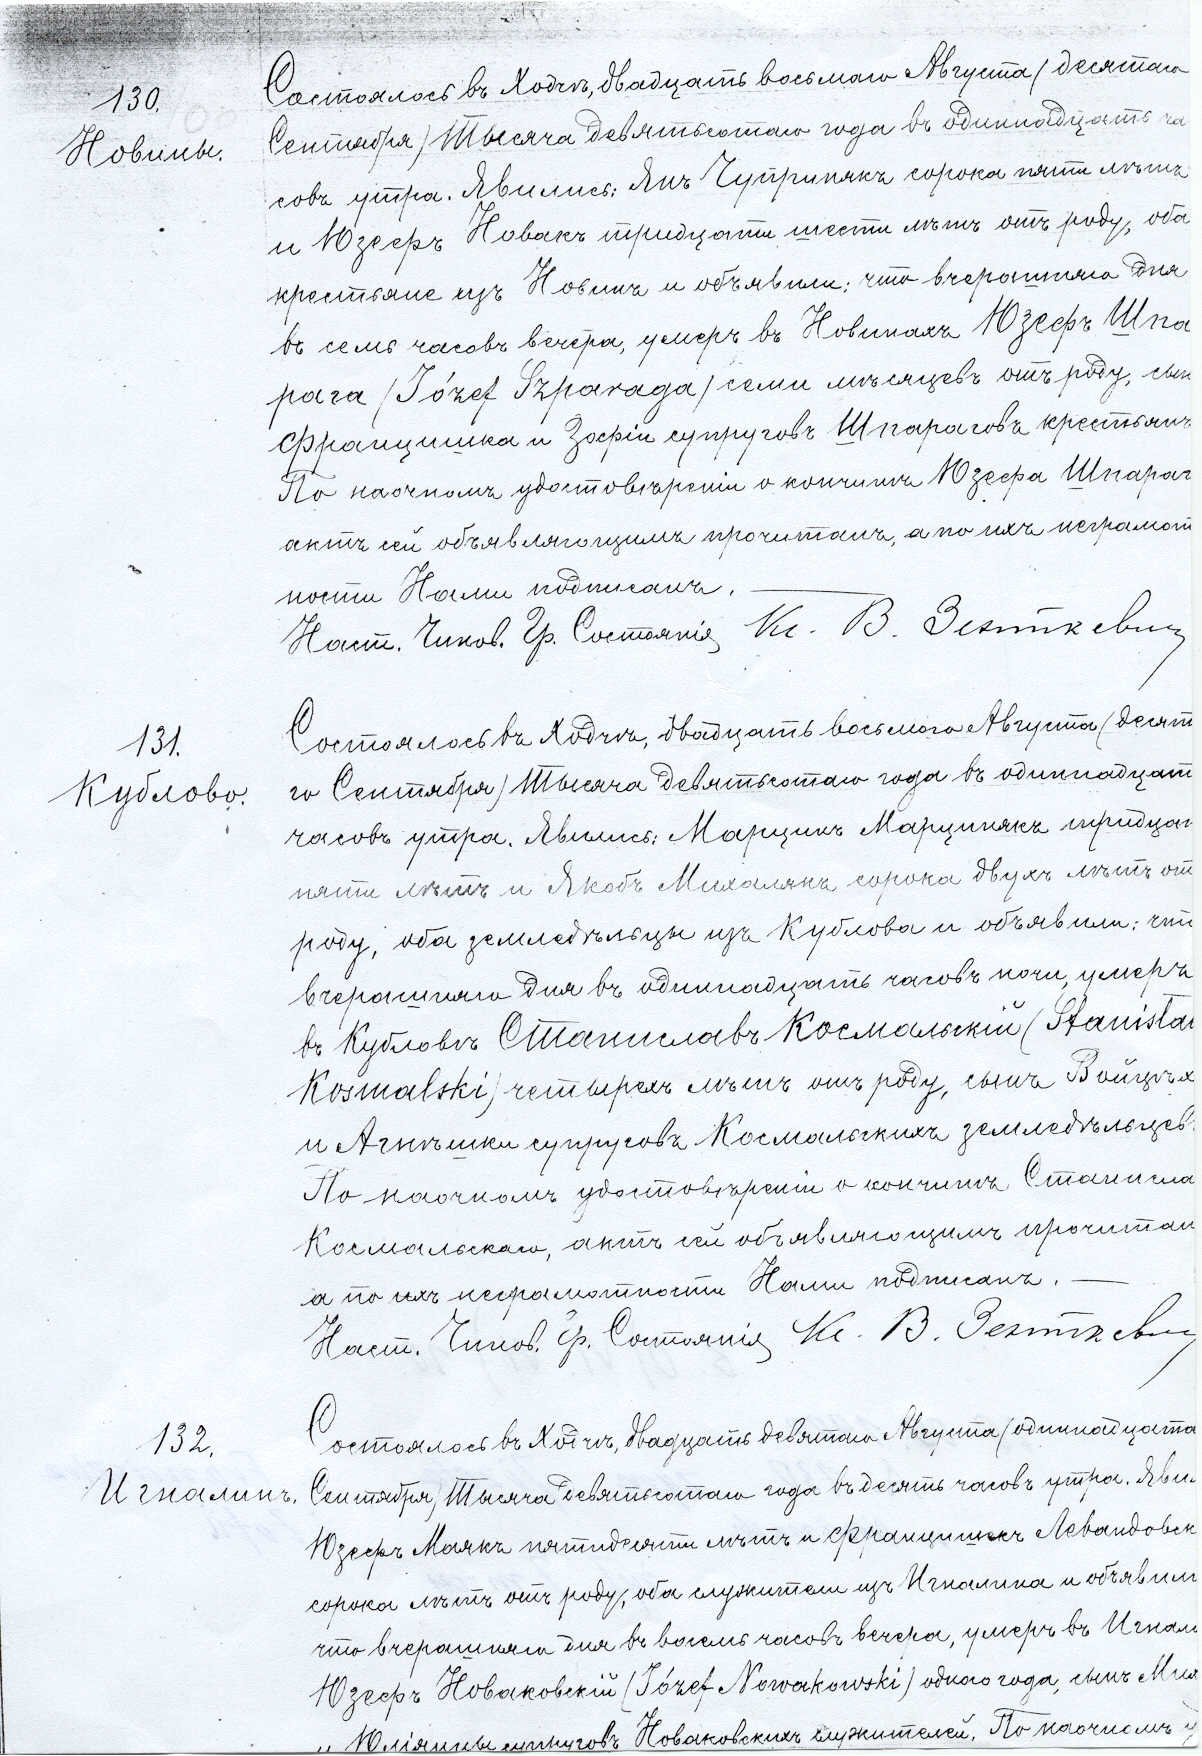 130.
Новины.
Состоялось въ Ходчѣ, двадцать восьмаго Августа (десятаго
Сентября) Тысяча девятьсотаго года въ одиннадцать ча
совъ утра. Явились: Янъ Чупринякъ сорока пяти лѣтъ
и Юзефъ Новакъ тридцати шести лѣтъ отъ роду, оба
крестьяне изъ Новинъ и объявили: что вчерашняго дня
въ семь часовъ вечера, умеръ въ Новинахъ Юзефъ Шпа
рага (Józef Szparaga) семи мѣсяцевъ отъ роду, сын
Францишка и Зофіи супруговъ Шпараговъ крестьянъ
По наочномъ удостовѣреніи о кончинѣ Юзефа Шпараг
актъ сей объявляющимъ прочитанъ, а по ихъ неграмот
ности Нами подписанъ.
Наст. Чинов. Гр. Состоянія Кс. В. Зенткевич
131.
Кублово.
Состоялось въ Ходчѣ, двадцать восьмого Августа (десят
го Сентября) Тысяча девятьсотаго года въ одиннадцат
часовъ утра. Явились: Марцинъ Марцинякъ тридцат
пяти лѣтъ и Якобъ Михалякъ сорока двухъ лѣтъ от
роду, оба земледѣльцы изъ Кублова и объявили: чт
вчерашняго дня въ одиннадцать часовъ ночи, умеръ
въ Кубловѣ Станиславъ Космальскій (Stanisła
Kosmalski) четырехъ лѣтъ отъ роду, сынъ Войцѣх
и Агнѣшки супруговъ Космальскихъ земледѣльцев
По наочномъ удостовѣреніи о кончинѣ Станисла
Космальскаго, актъ сей объявляющимъ прочитан
а по ихъ неграмотности Нами подписанъ.
Наст. Чинов. Гр. Состоянія Кс. В. Зенткевич
132.
Игналинъ.
Состоялось въ Ходчѣ, двадцать девятаго Августа (одиннадцата
Сентября) Тысяча девятьсотаго года въ десять часовъ утра. Яви
Юзефъ Маякъ пятидесяти лѣтъ и Францишекъ Левандовск
сорока лѣтъ отъ роду, оба служители изъ Игналина и объявили
что вчерашняго дня въ восемь часовъ вечера, умеръ въ Игнал
Юзефъ Новаковскій (Józef Nowakowski) одного года, сынъ
и Юліянны супруговъ Новаковскихъ служителей. По наочномъ у